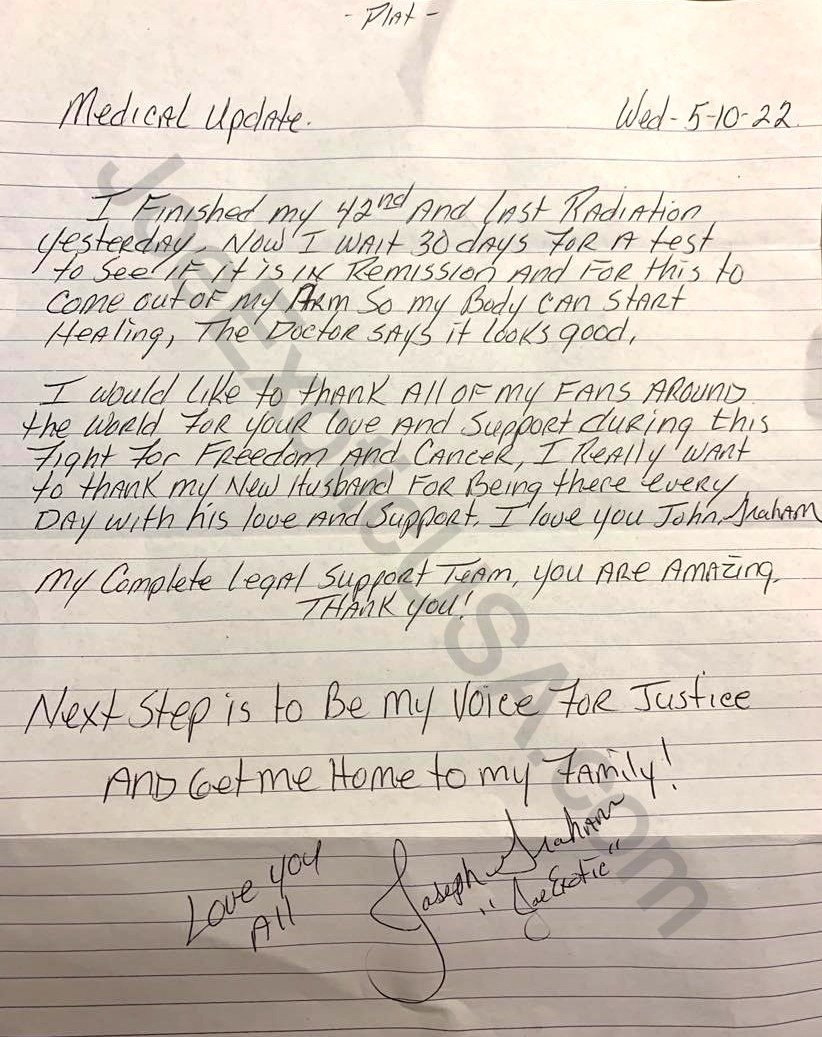 - Plat -
Medical Update. Wed- 5-10-22
I Finished my 42nd And last Radiation
yesterday. Now I wait 30 days for a test
to See if it is in Remission And for this to
come out of my Arm So my Body can start
Healing, The Doctor says it looks good.
I would like to thank All of my Fans Around
the World for your love And Support during this
Fight for Freedom And Cancer, I Really want
to thank my New Husband For Being there every
Day with his love And Support. I love you John, Graham
My Complete legal Support Team, you Are Amazing.
Thank you!
Next Step is to Be my Voice for Justice
And Get me Home to my Family!
Love you
All
Joseph Graham
"Joe Exotic"
JoeExoticUSA.com